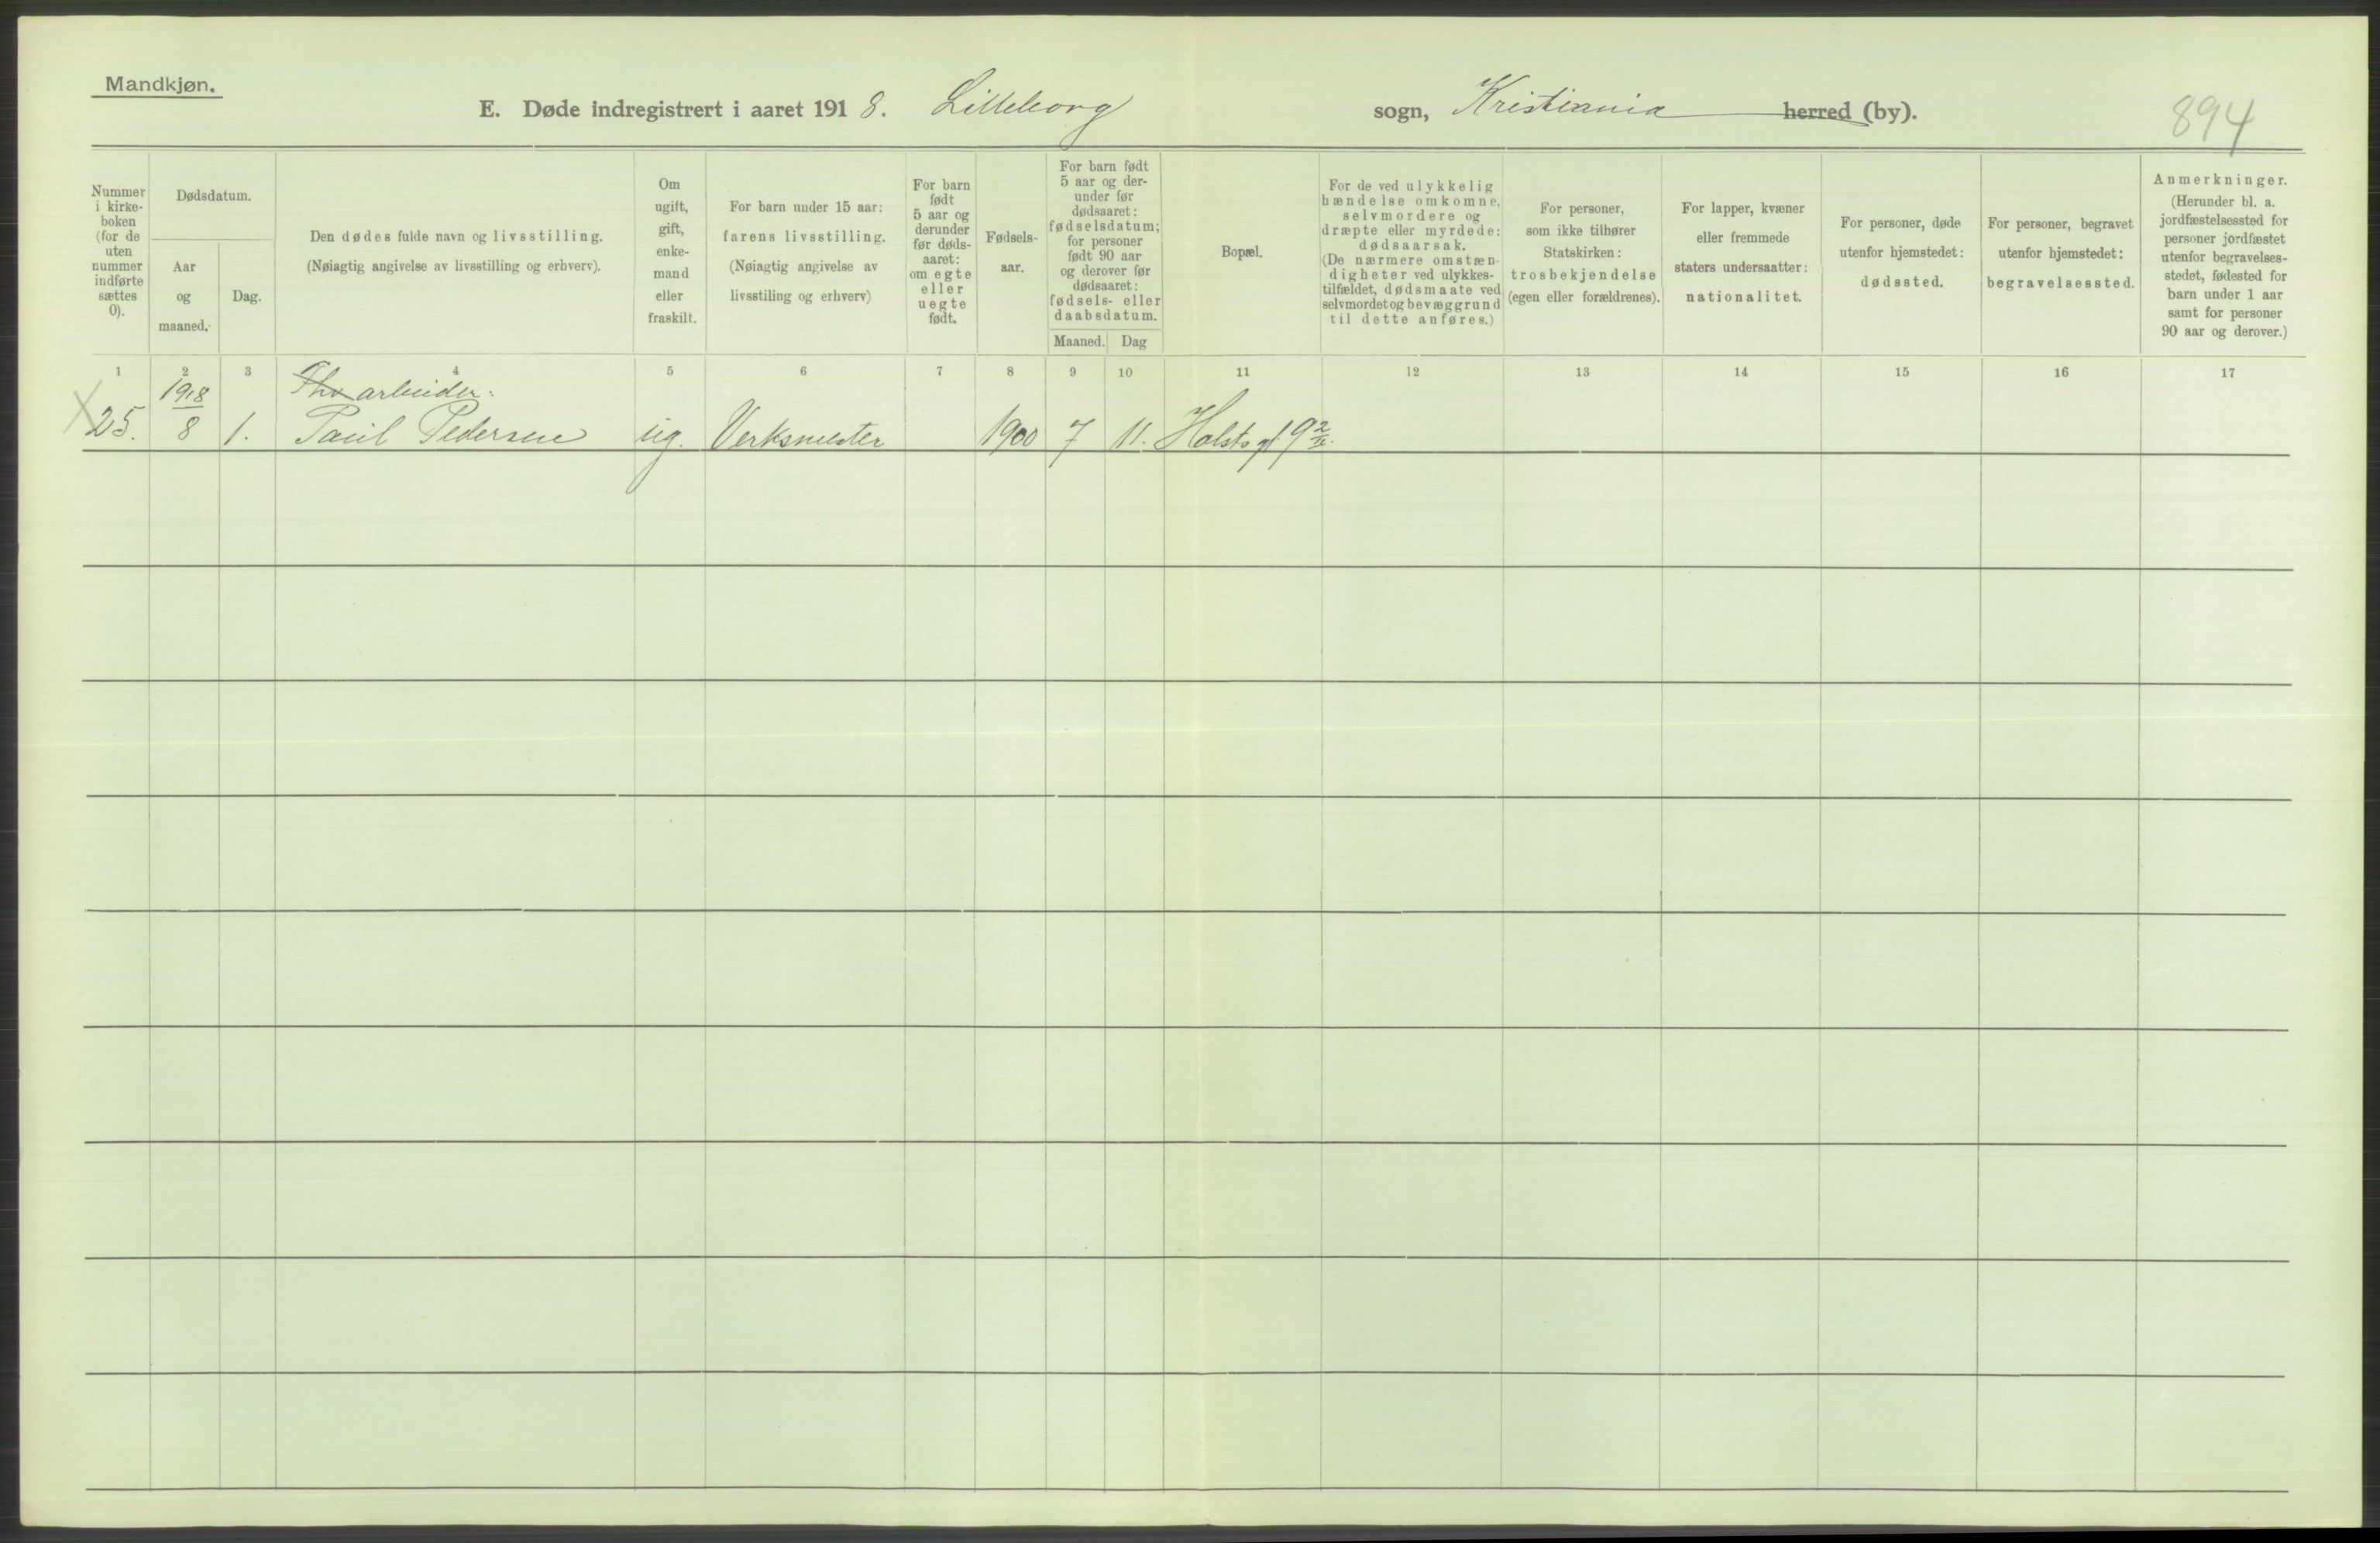 Mandkjøn.
E. Døde indregistrert i aaret 1918. Lilleborg sogn, Kristiania herred (by).
894
Nummer i kirke-boken (for de uten nummer indførte sættes 0).
Dødsdatum.
Aar og maaned.
Dag.
Den dødes fulde navn og livsstilling.
(Nøiagtig angivelse av livsstilling og erhverv).
Om ugift, gift, enke-mand eller fraskilt.
For barn under 15 aar:
farens livsstilling.
(Nøiagtig angivelse av
livsstiling og erhverv)
For barn født 5 aar og derunder før døds-aaret: om egte eller uegte født.
Fødsels-aar.
For barn født 5 aar og der-under før dødsaaret: fødselsdatum; for personer født 90 aar og derover før dødsaaret: fødsels- eller daabsdatum.
Maaned. Dag
Bopæl.
For de ved ulykkelig hændelse omkomne, selvmordere og dræpte eller myrdede: dødsaarsak. (De nærmere omstæn-digheter ved ulykkes-tilfældet, dødsmaate ved selvmordet og bevæggrund til dette anføres.)
For personer, som ikke tilhører Statskirken: trosbekjendelse (egen eller forældrenes).
For lapper, kvæner eller fremmede staters undersaatter: nationalitet.
For personer, døde utenfor hjemstedet: dødssted.
For personer, begravet utenfor hjemstedet: begravelsessted.
Anmerkninger. (Herunder bl. a. jordfæstelsessted for personer jordfæstet utenfor begravelses-stedet, fødested for barn under 1 aar samt for personer 90 aar og derover.)
1 2 3 4 5 6 7 8 9 10 11 12 13 14 15 16 17
1918 arbeider.
25. 8 1. Paul Pedersen ug. Verksmester 1900 7 11. Holsts gt. 9 2/IV.